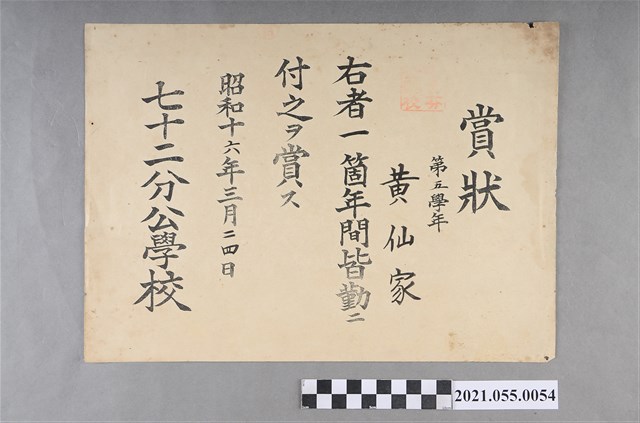 賞狀
第五學年
黄仙家
右者一箇年間皆勤ニ
付之ヲ賞ス
昭和十六年三月二四日
七十二分公學校
2021.055.0054